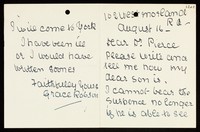 I will come to York
I have been ill
or I would have
written sooner
Faithfully Yours
Grace Robson
102 Westmorland
Rd.
August 16
Dear M Pierce
Please write and
tell me how my
dear son is.
I cannot bear the
suspence no longer
if he is able to see